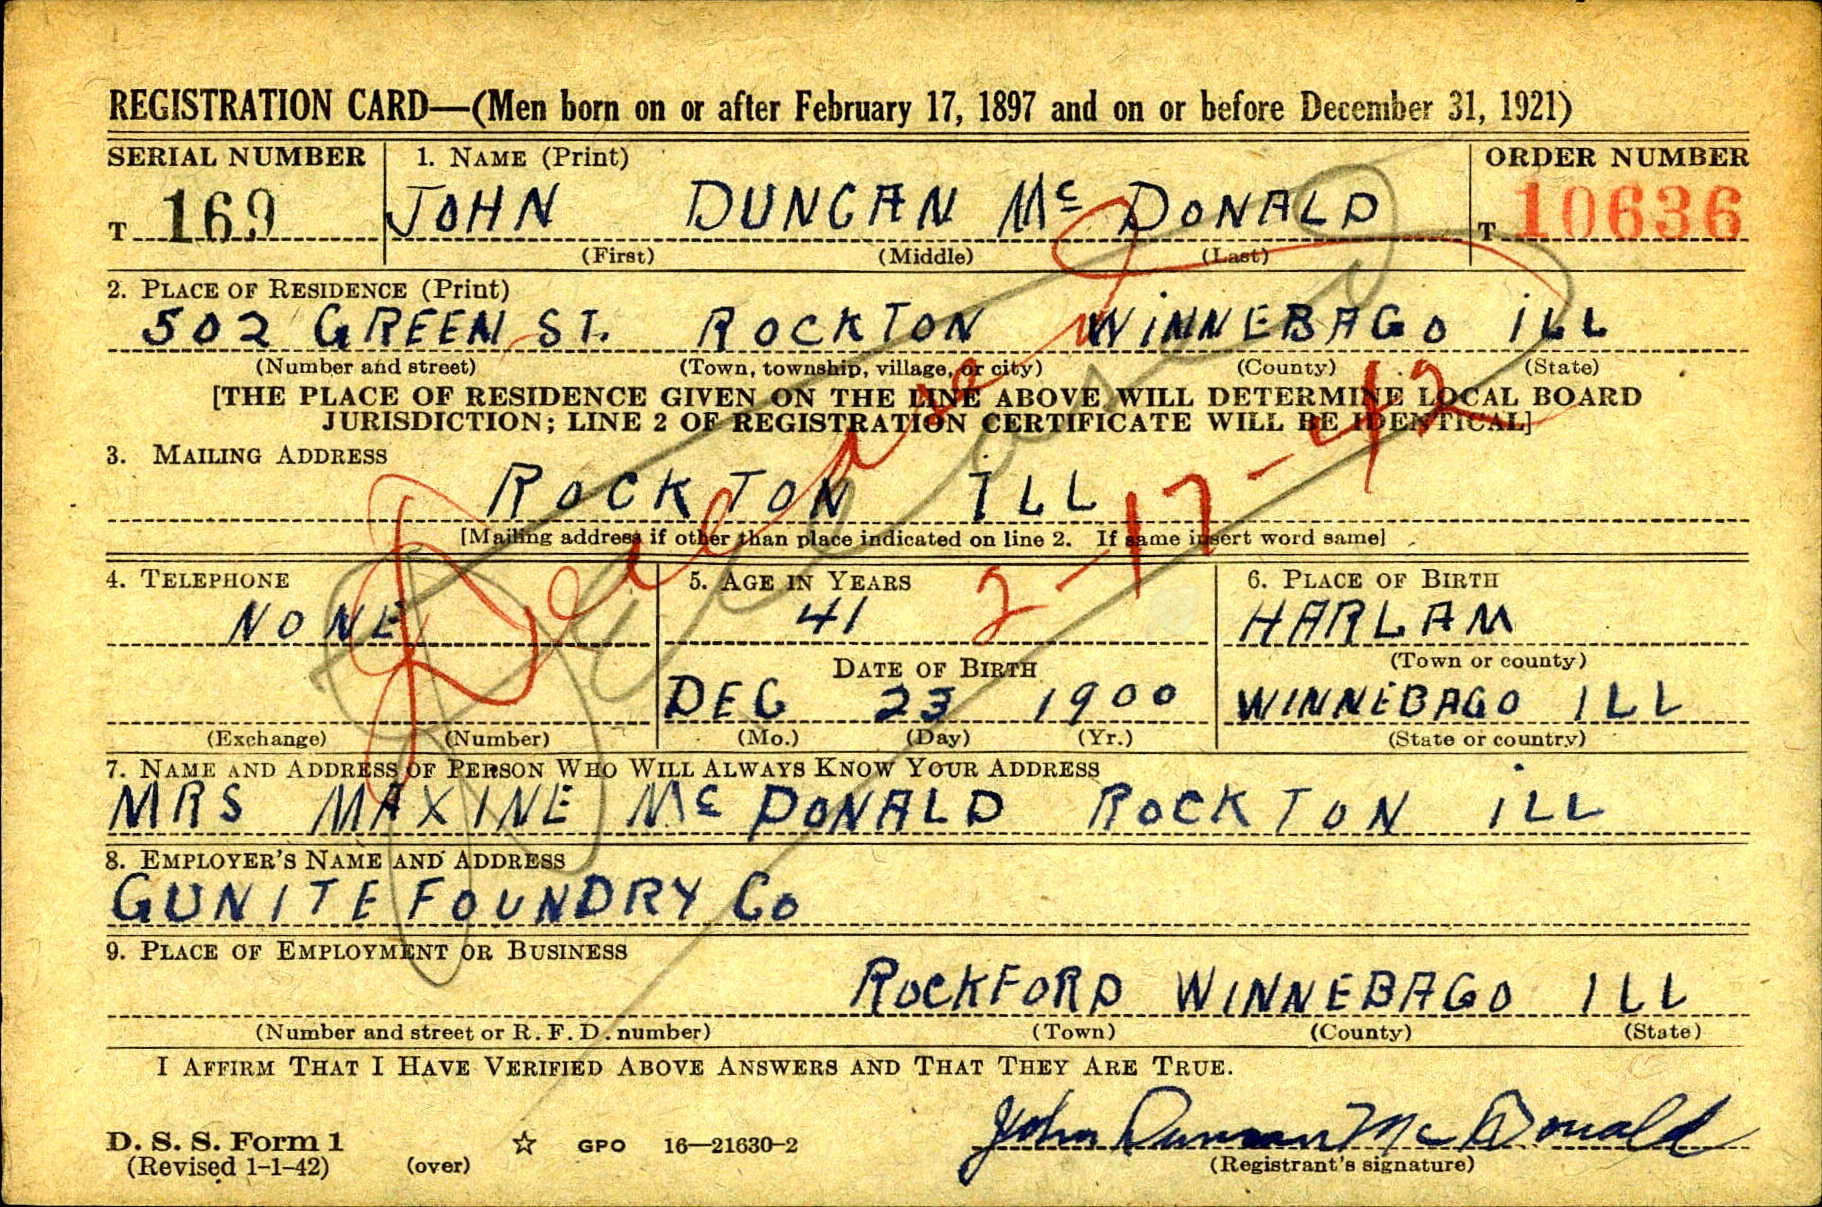 REGISTRATION CARD—(Men born on or after February 17, 1897 and on or before December 31, 1921)
SERIAL NUMBER 1. NAME (Print) ORDER NUMBER
T 169 JOHN DUNCAN Mc DONALD T 10636
(First) (Middle) (Last)
2. PLACE OF RESIDENCE (Print)
502 GREEN ST. ROCKTON WINNEBAGO ILL
(Number and street) (Town, township, village, or city) (County) (State)
[THE PLACE OF RESIDENCE GIVEN ON THE LINE ABOVE WILL DETERMINE LOCAL BOARD
JURISDICTION; LINE 2 OF REGISTRATION CERTIFICATE WILL BE IDENTICAL]
3. MAILING ADDRESS
ROCKTON ILL
[Mailing address if other than place indicated on line 2. If same insert word same]
Deceased
Deceased
2-17-42
4. TELEPHONE 5. AGE IN YEARS 6. PLACE OF BIRTH
NONE 41 HARLAM
(Town or county)
DATE OF BIRTH
DEC 23 1900 WINNEBAGO ILL
(Exchange) (Number) (Mo.) (Day) (Yr.) (State or country)
7. NAME AND ADDRESS OF PERSON WHO WILL ALWAYS KNOW YOUR ADDRESS
MRS MAXINE Mc DONALD ROCKTON ILL
8. EMPLOYER'S NAME AND ADDRESS
GUNITE FOUNDRY Co
9. PLACE OF EMPLOYMENT OR BUSINESS
ROCKFORD WINNEBAGO ILL
(Number and street or R. F. D. number) (Town) (County) (State)
I AFFIRM THAT I HAVE VERIFIED ABOVE ANSWERS AND THAT THEY ARE TRUE.
John Duncan Mc Donald
D. S. S. Form 1 GPO 16—21630-2
(Revised 1-1-42) (over) (Registrant's signature)